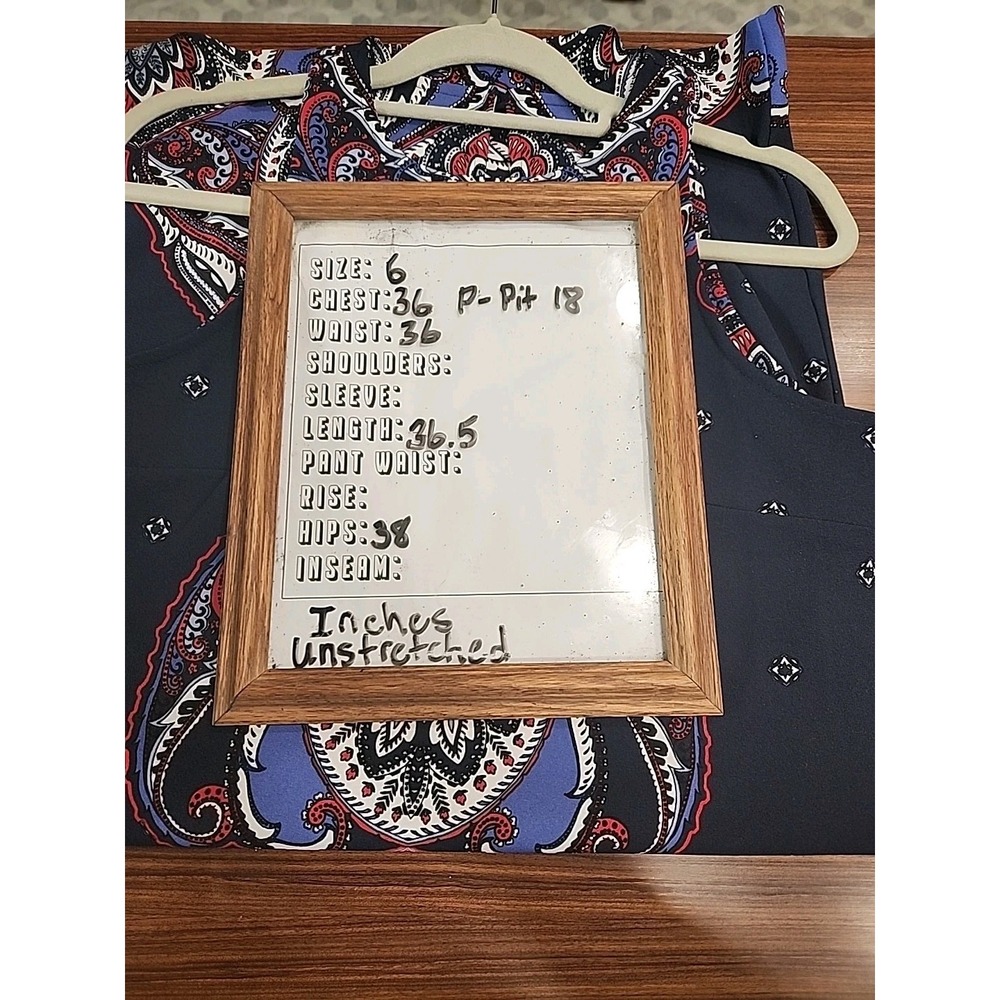 SIZE: 6
CHEST: 36 P-Pit 18
WAIST: 36
SHOULDERS:
SLEEVE:
LENGTH: 36.5
PANT WAIST:
RISE:
HIPS: 38
INSEAM:
Inches
unstretched